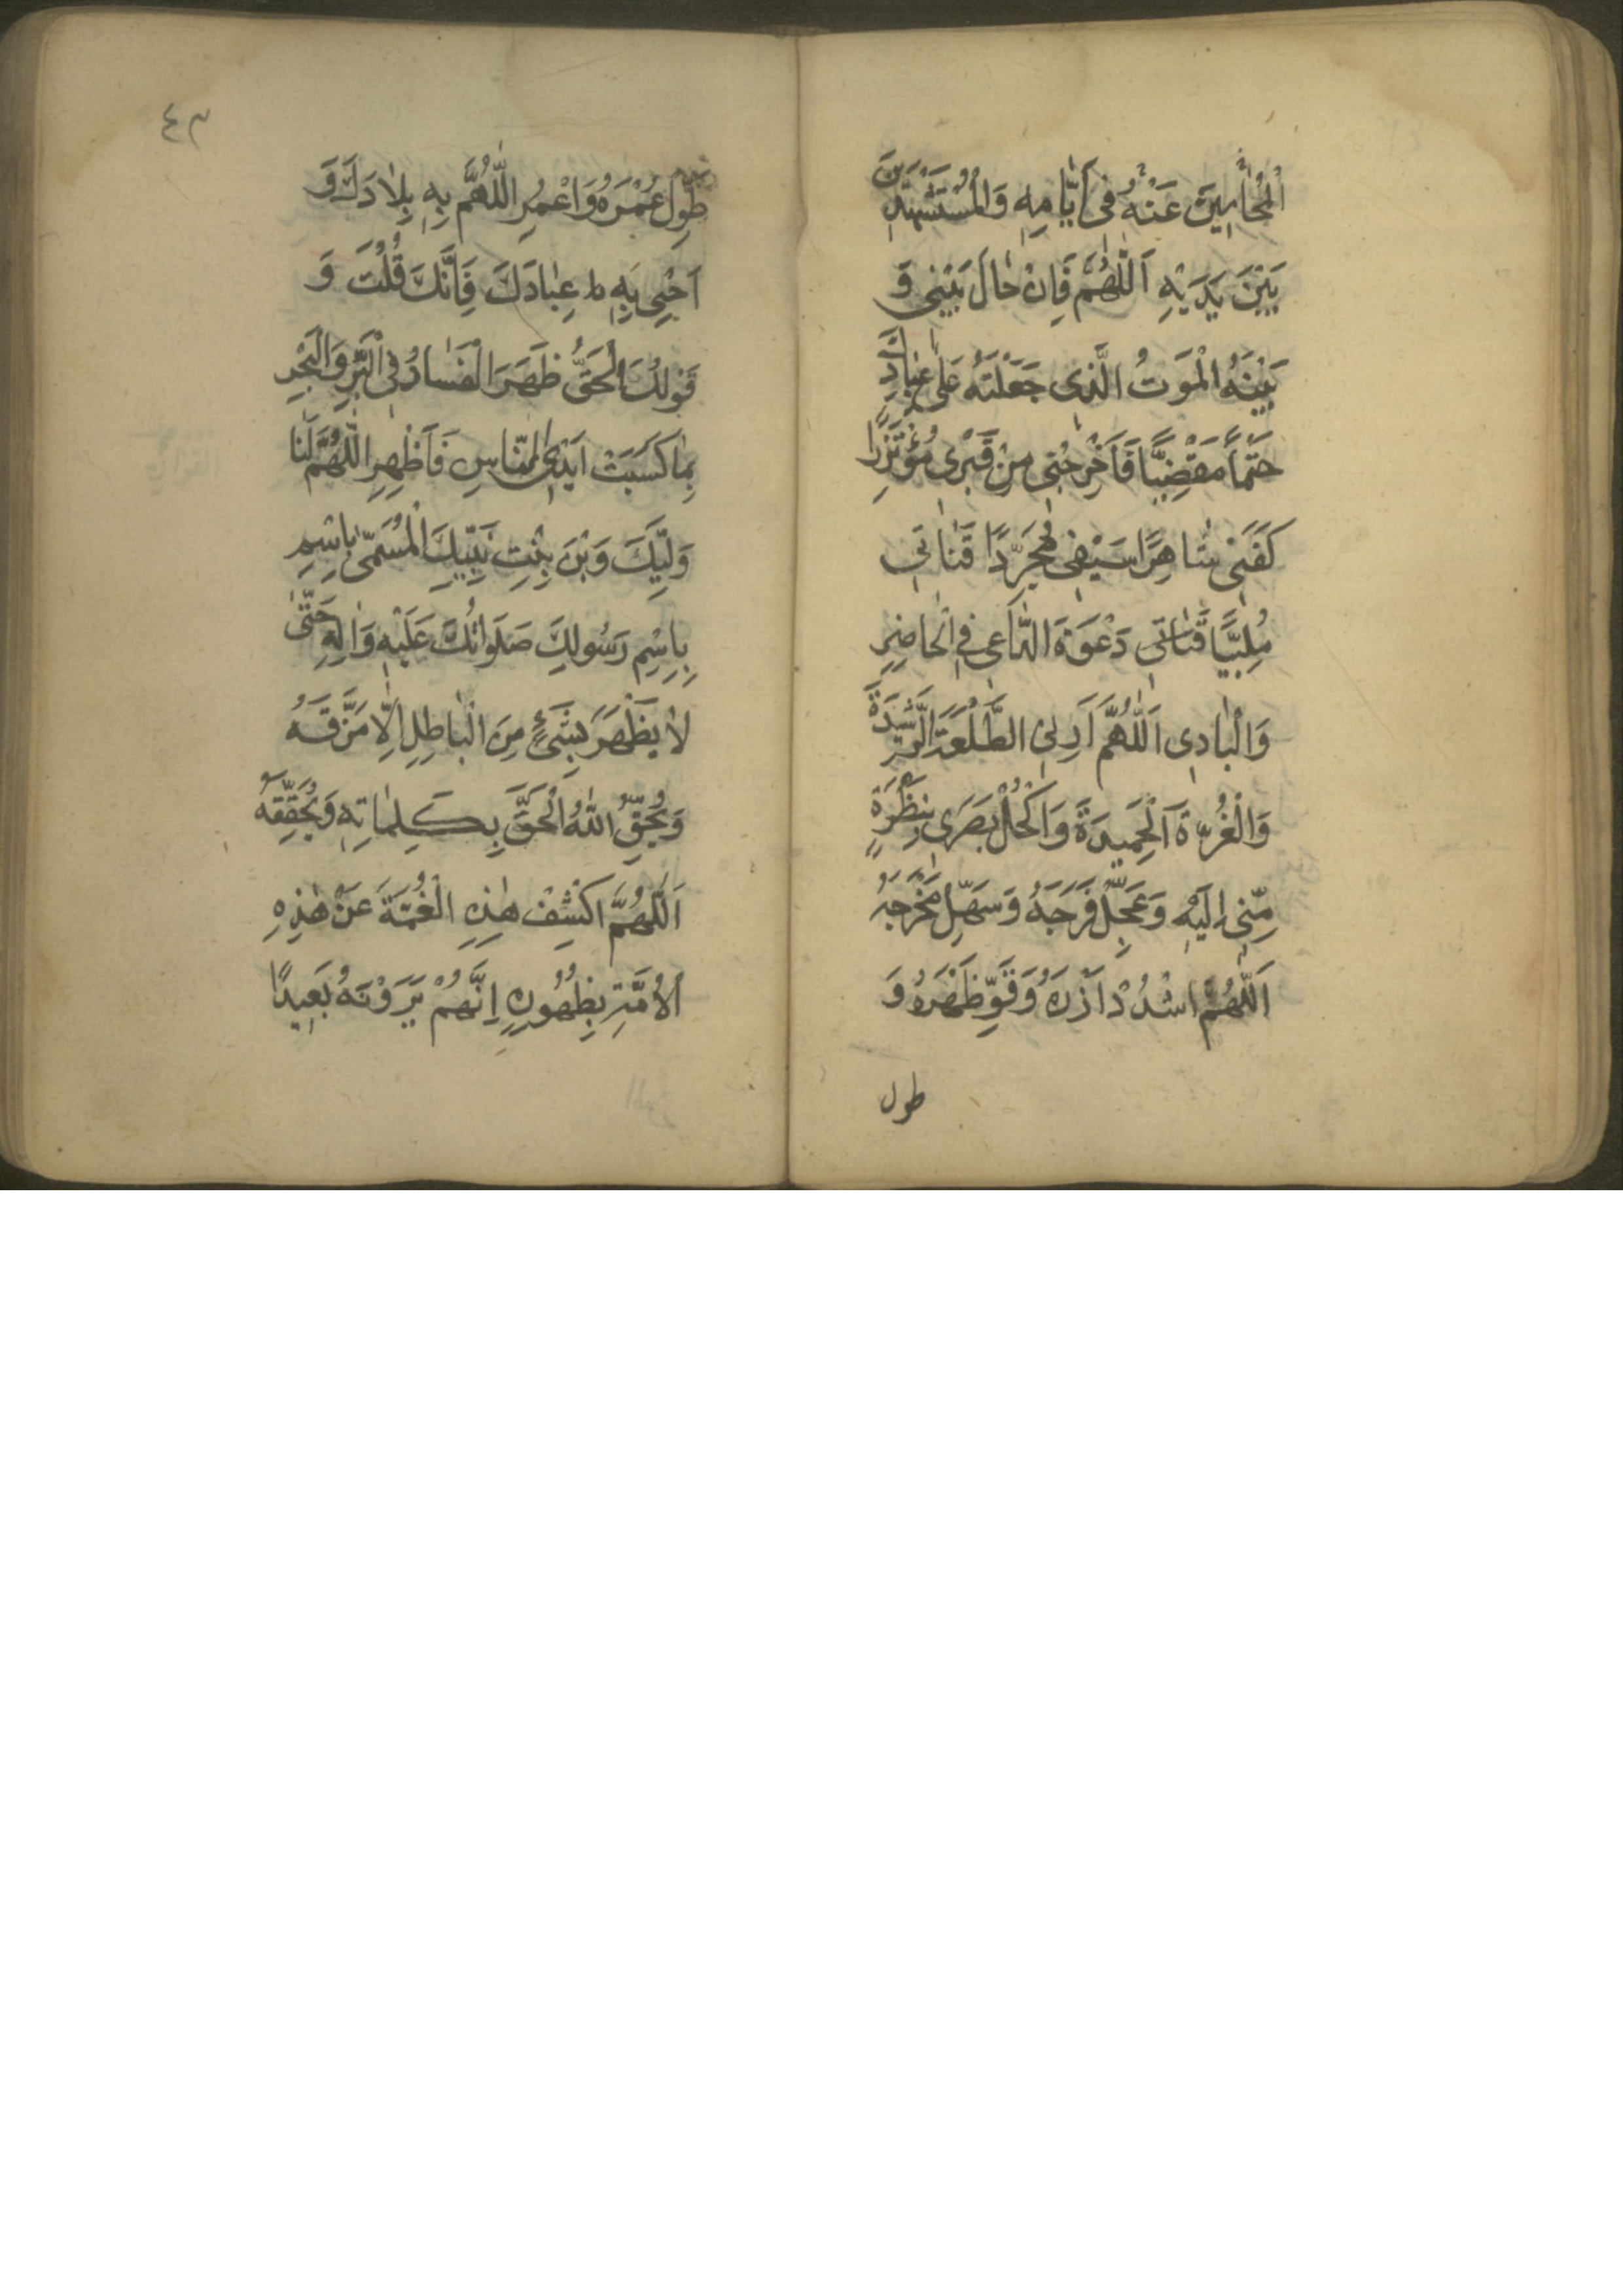 اَلْمُحٰامِينَ عَنْهُ فى اَيّٰامِهِ وَالْمُسْتَشْهَدِينَ
بَيْنَ يَدَيْهِ اَللّٰهُمَّ فَاِنْ حٰالَ بَيْنِى وَ
بَيْنَهُ الْمَوتُ الَّذِى جَعَلْتَهُ عَلىٰ عِبٰادِكَ
حَتْماً مَقْضِيًّا فَاَخْرِجْنِى مِنْ قَبْرِى مُؤْتَزِرًا
كَفَنِى شٰاهِرًا سَيْفِى مُجَرِّدًا قَنٰاتِى
مُلَبِّيًا قَنٰاتى دَعْوَةَ الدّٰاعِى فِى الْحٰاضِرِ
وَالْبٰادِى اَللّٰهُمَّ اَرِنِى الطَّلْعَةَ الرَّشِيدَةَ
وَالْغُرَّةَ الْحَمِيدَةَ وَاكْحُلْ بَصَرِى بِنَظْرَةٍ
مِنّى اِلَيْهِ وَعَجِّلْ فَرَجَهُ وَسَهِّلْ مَخْرَجَهُ
اَللّٰهُمَّ اشْدُدْ اَزْرَهُ وَقَوِّ ظَهْرَهُ وَ
طول
٤٣
طَوِّل عُمْرَهُ وَاعْمُرِ اللّٰهُمَّ بِهِ بِلٰادَكَ وَ
اَحْىِ بِهِ عِبٰادَكَ فَاِنَّكَ قُلْتَ وَ
قَولُكَ الْحَقُّ ظَهَرَ الْفَسٰادُ فِى الْبَرِّ وَالْبَحْرِ
بِمٰا كَسَبَتْ اَيْدِى النّٰاسِ فَاَظْهِرِ اللّٰهُمَّ لَنٰا
وَلِيَّكَ وَبْنَ بِنْتِ نَبِيِّكَ الْمُسَمّىٰ بِاسْمِ
بِاِسْمِ رَسُولِكَ صَلَوٰاتُكَ عَلَيْهِ وَاٰلِهِ حَتّٰى
لٰا يَظْهَرَ بِشَىْءٍ مِنَ الْبٰاطِلِ اِلّٰا مَزَّقَهُ
وَيُحِقَّ اللّٰهُ الْحَقَّ بِكَلِمٰاتِهِ وَيُحَقِّقَهُ
اَللّٰهُمَّ اكْشِفْ هٰذِهِ الْغُمَّةَ عَنْ هٰذِهِ
الْاُمَّةِ بِظُهُورِهِ اِنَّهُمْ يَرَوْنَهُ بَعِيدًا